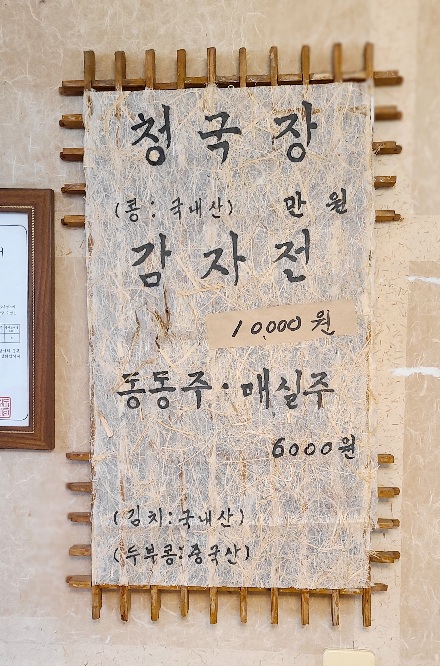 청국장
(콩: 국내산) 만 원
감자전
10,000 원
동동주 · 매실주
6000원
(김치:국내산)
(두부콩:중국산)